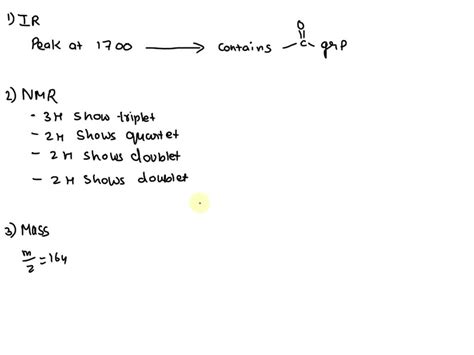 1) IR
Peak at 1700 ⟶ contains -C(=O)- grp
2) NMR
- 3H show triplet
- 2H Shows quartet
- 2H shows doublet
- 2H shows doublet
3) Mass
m/z = 164